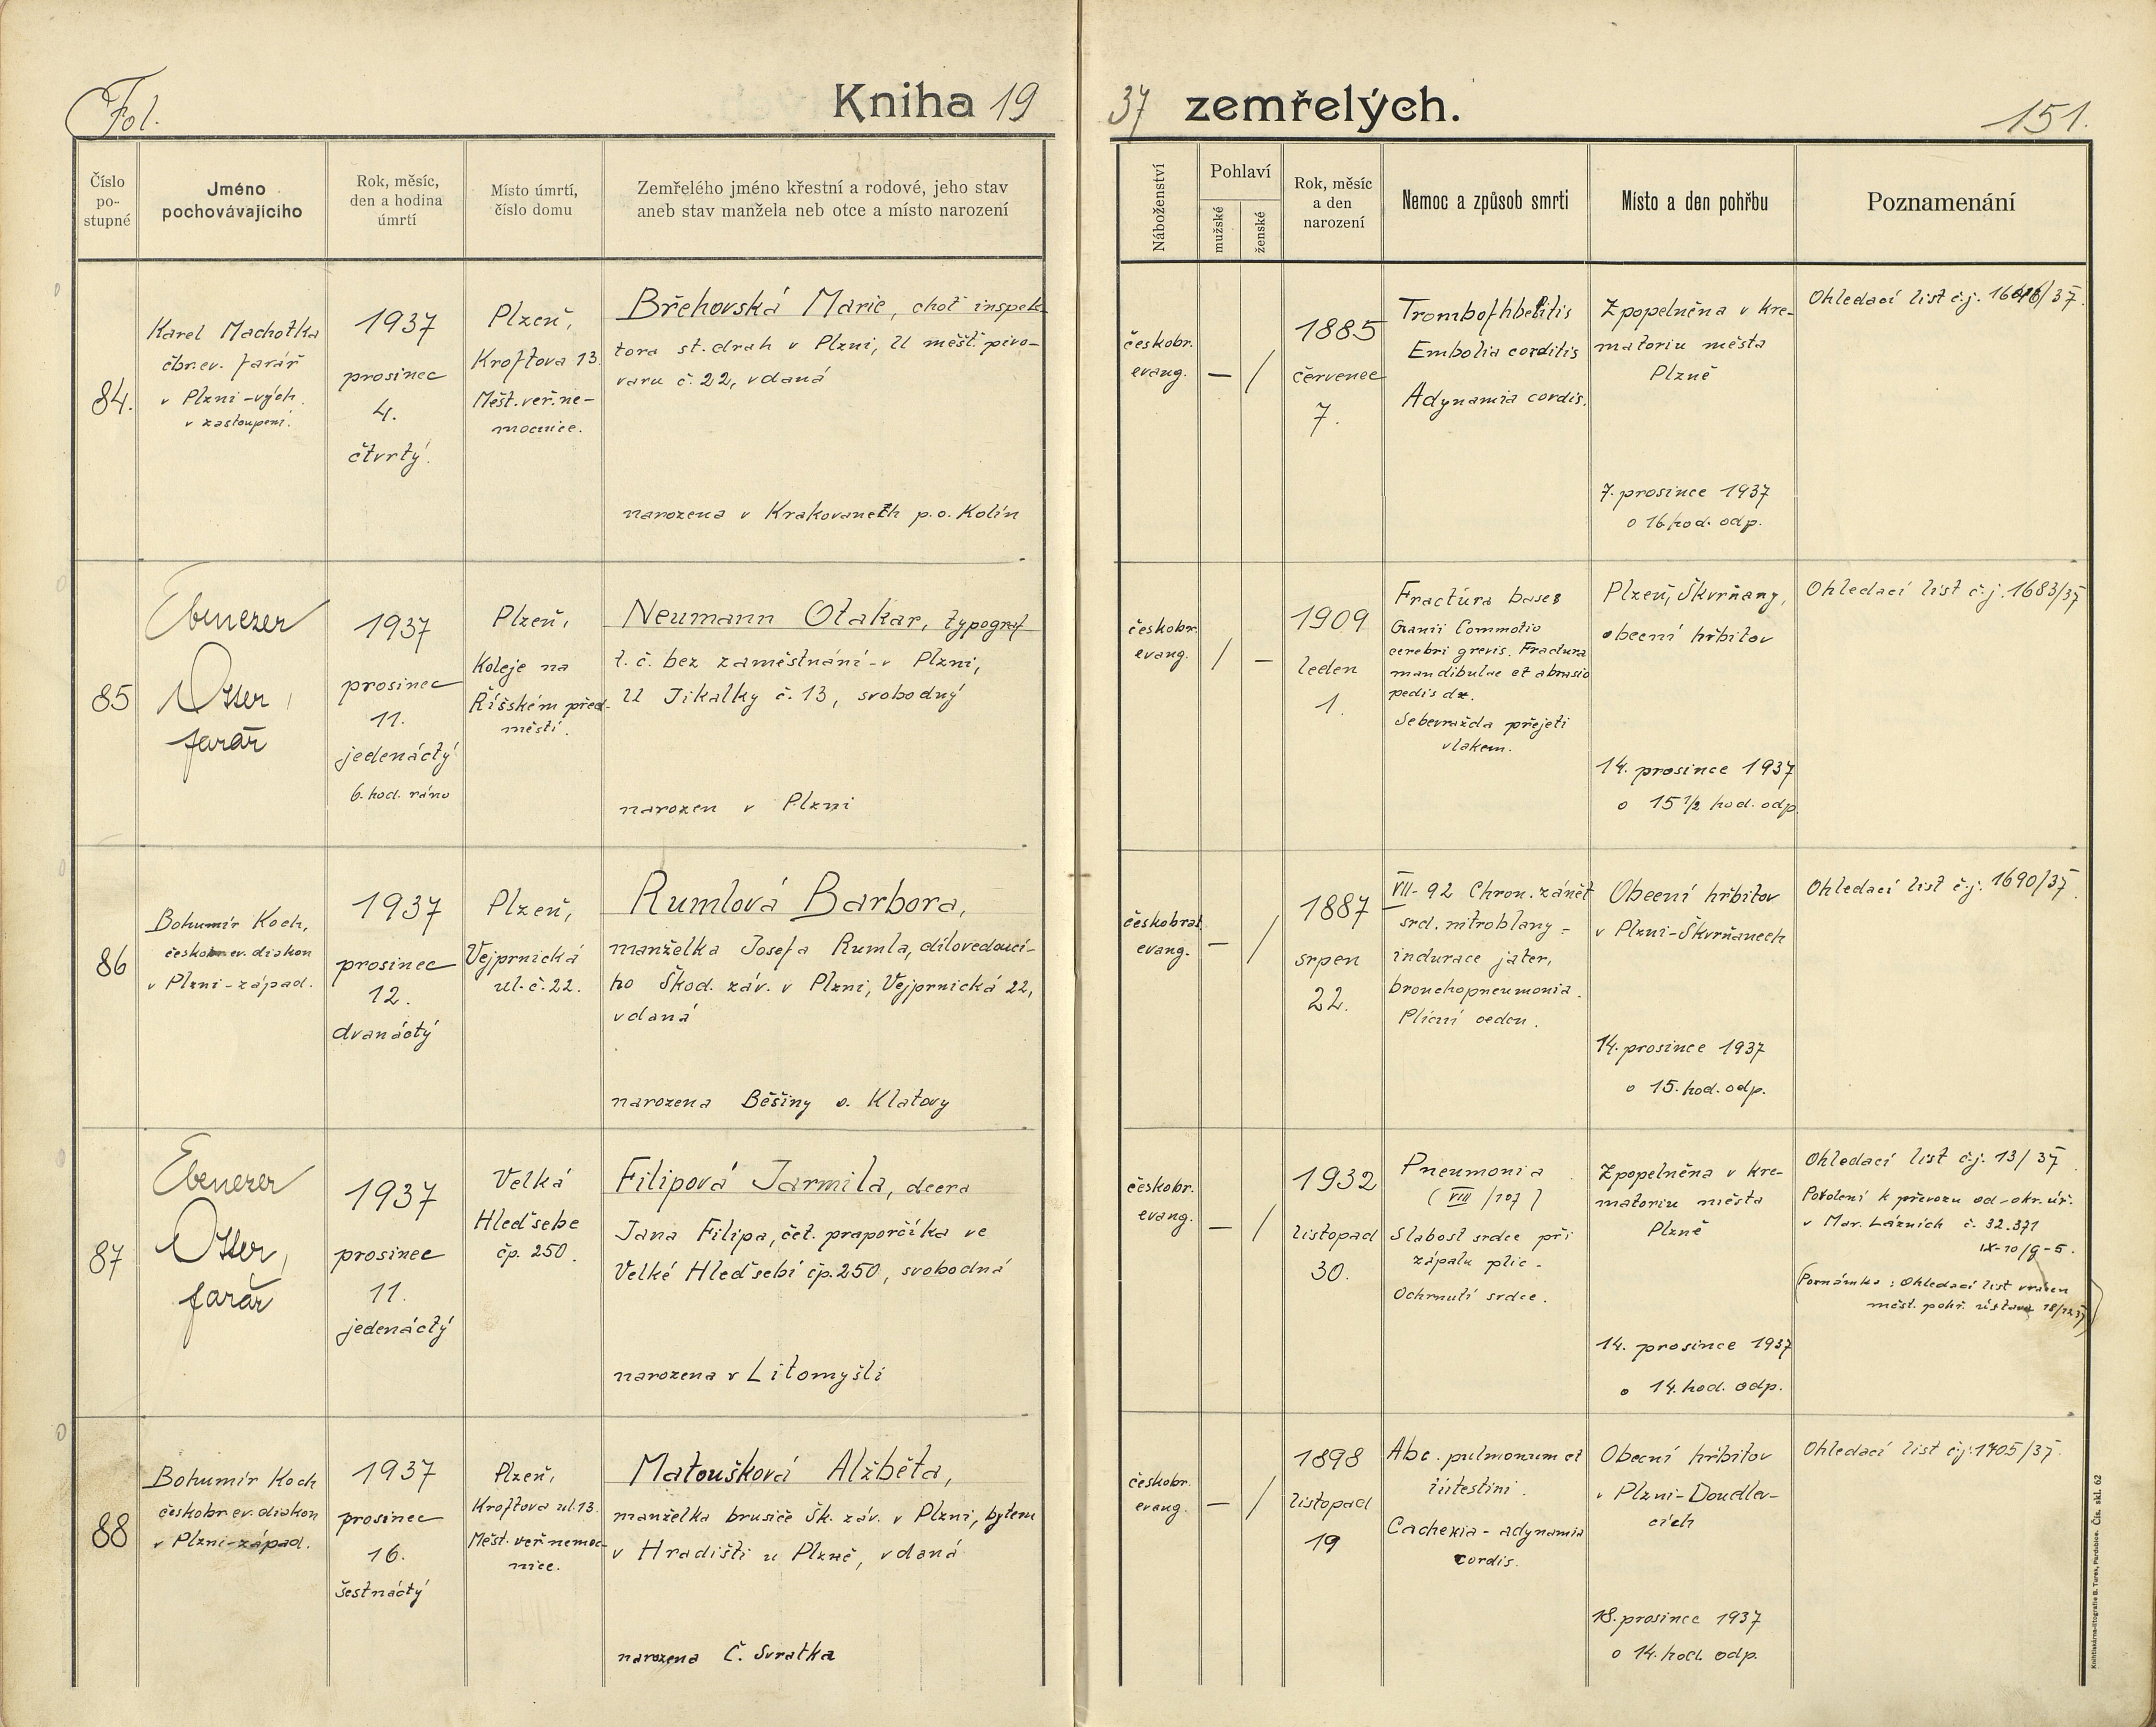 Fol.
Kniha 19
37 zemřelých.
151.
Číslo
po-
stupné
Jméno
pochovávajícího
Rok, měsíc,
den a hodina
úmrtí
Místo úmrtí,
číslo domu
Zemřelého jméno křestní a rodové, jeho stav
aneb stav manžela neb otce a místo narození
Náboženství
Pohlaví
mužské
ženské
Rok, měsíc
a den
narození
Nemoc a způsob smrti
Místo a den pohřbu
Poznamenání
84.
Karel Machotka
čbr.ev. farář
v Plzni-vých.
v zastoupení.
1937
prosinec
4.
čtvrtý.
Plzeň,
Kroftova 13.
Měst. veř. ne-
mocnice.
Břehovská Marie, choť inspek-
tora st. drah v Plzni, U měšť. pivo-
varu č. 22, vdaná
narozena v Krakovanech p.o. Kolín
českobr.
evang.
— /
1885
červenec
7.
Embolia corditis
Adynamia cordis.
Zpopelněna v kre-
matoriu města
Plzně
7. prosince 1937
o 16 hod. odp.
Ohledací list č.j.
85
Ebenezer
Otter,
farář
1937
prosinec
11.
jedenáctý
6. hod. ráno
Plzeň,
Koleje na
Říšském před-
městí.
Neumann Otakar, typograf
t. č. bez zaměstnání - v Plzni,
U Jikalky č. 13, svobodný
narozen v Plzni
českobr.
evang.
/ —
1909
leden
1.
Fractura bases
Cranii Commotio
cerebri grevis. Fractura
mandibulae et abrasio
pedis dx.
Sebevražda přejetí
vlakem.
Plzeň, Škvrňany,
obecní hřbitov
14. prosince 1937
o 15 1/2 hod. odp.
Ohledací list č.j. 1683/37
86
Bohumír Koch,
českobr. ev. diakon
v Plzni-západ.
1937
prosinec
12.
dvanáctý
Plzeň,
Vejprnická
ul. č. 22.
Rumlová Barbora,
manželka Josefa Rumla, dílovedoucí-
ho Škod. záv. v Plzni, Vejprnická 22,
vdaná
narozena Běšiny o. Klatovy
českobrat.
evang.
— /
1887
srpen
22.
VII- 92 Chron. zánět
srd. nitroblany -
indurace jater,
bronchopneumonia.
Plicní oedem.
Obecní hřbitov
v Plzni-Škvrňanech
14. prosince 1937
o 15. hod. odp.
Ohledací list č.j. 1690/37.
87
Ebenezer
Otter,
farář
1937
prosinec
11.
jedenáctý
Velká
Hleďsebe
čp. 250.
Filipová Jarmila, dcera
Jana Filipa, čet. praporčíka ve
Velké Hleďsebi čp. 250, svobodná
narozena v Litomyšli
českobr.
evang.
— /
1932
listopad
30.
Pneumonia
( VIII /107 )
Slabost srdce při
zápalu plic -
Ochrnutí srdce.
Zpopelněna v kre-
matoriu města
Plzně
14. prosince 1937
o 14. hod. odp.
Ohledací list č.j. 13/37
Povolení k převozu od okr. úř.
v Mar. Lázních č. 32.371
IX-10/g-5.
(Poznámka: Ohledací list vrácen
měst. pohř. ústavu 18/12 37)
88
Bohumír Koch
českobr. ev. diakon
v Plzni-západ.
1937
prosinec
16.
šestnáctý
Plzeň,
Kroftova ul. 13.
Měst. veř nemoc-
nice.
Matoušková Alžběta,
manželka brusiče Šk. záv. v Plzni, bytem
v Hradišti u Plzně, vdaná
narozena Č. Svratka
českobr.
evang.
— /
1898
listopad
19
Abc. pulmonum et
intestini.
Cachexia - adynamia
cordis.
Obecní hřbitov
v Plzni-Doudlev-
cích
18. prosince 1937
o 14. hod. odp.
Ohledací list č.j. 1705/37.
Knihtiskárna-litografie B. Turek, Pardubice. Čís. skl. 62